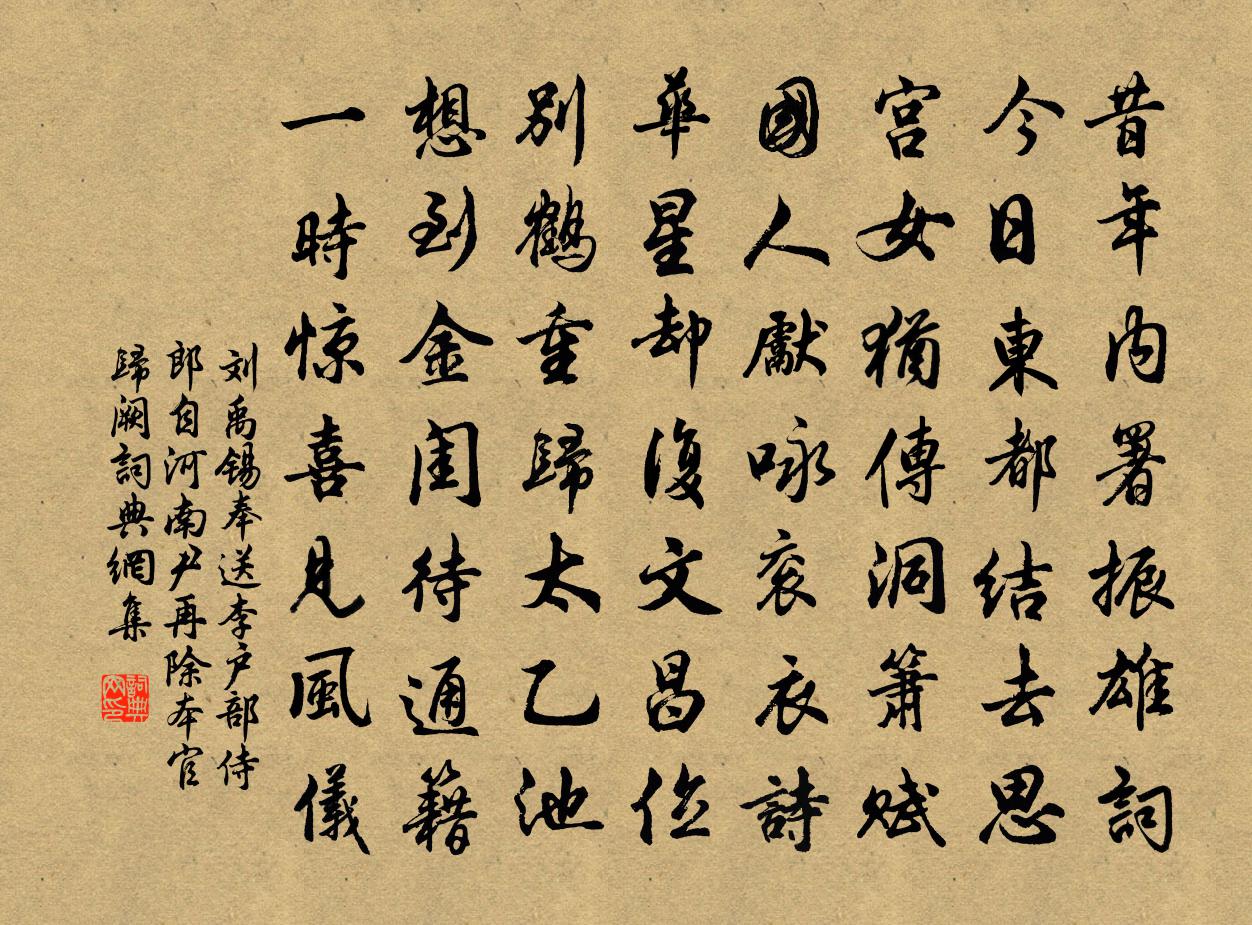 昔年内署振雄詞
今日東都結去思
宫女猶傳洞簫賦
國人獻咏衮衣詩
華星却復文昌位
别鶴重歸太乙池
想到金閨待通籍
一時惊喜見風儀
刘禹錫奉送李户部侍
郎自河南尹再除本官
歸闕詞典網集
詞典网印